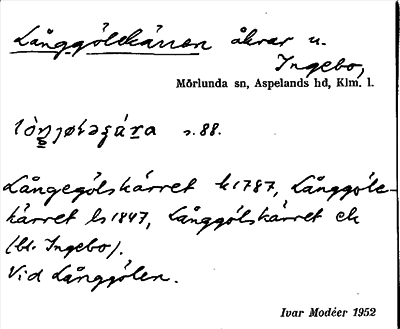 Långgölskärren åkrar u.
Ingebo,
Mörlunda sn, Aspelands hd, Klm. l.
s. 88.
Långegölskärret k 1787, Långgöls-
kärret ls 1847, Långgölskärret ek
(bl. Ingebo).
Vid Långgölen.
Ivar Modéer 1952